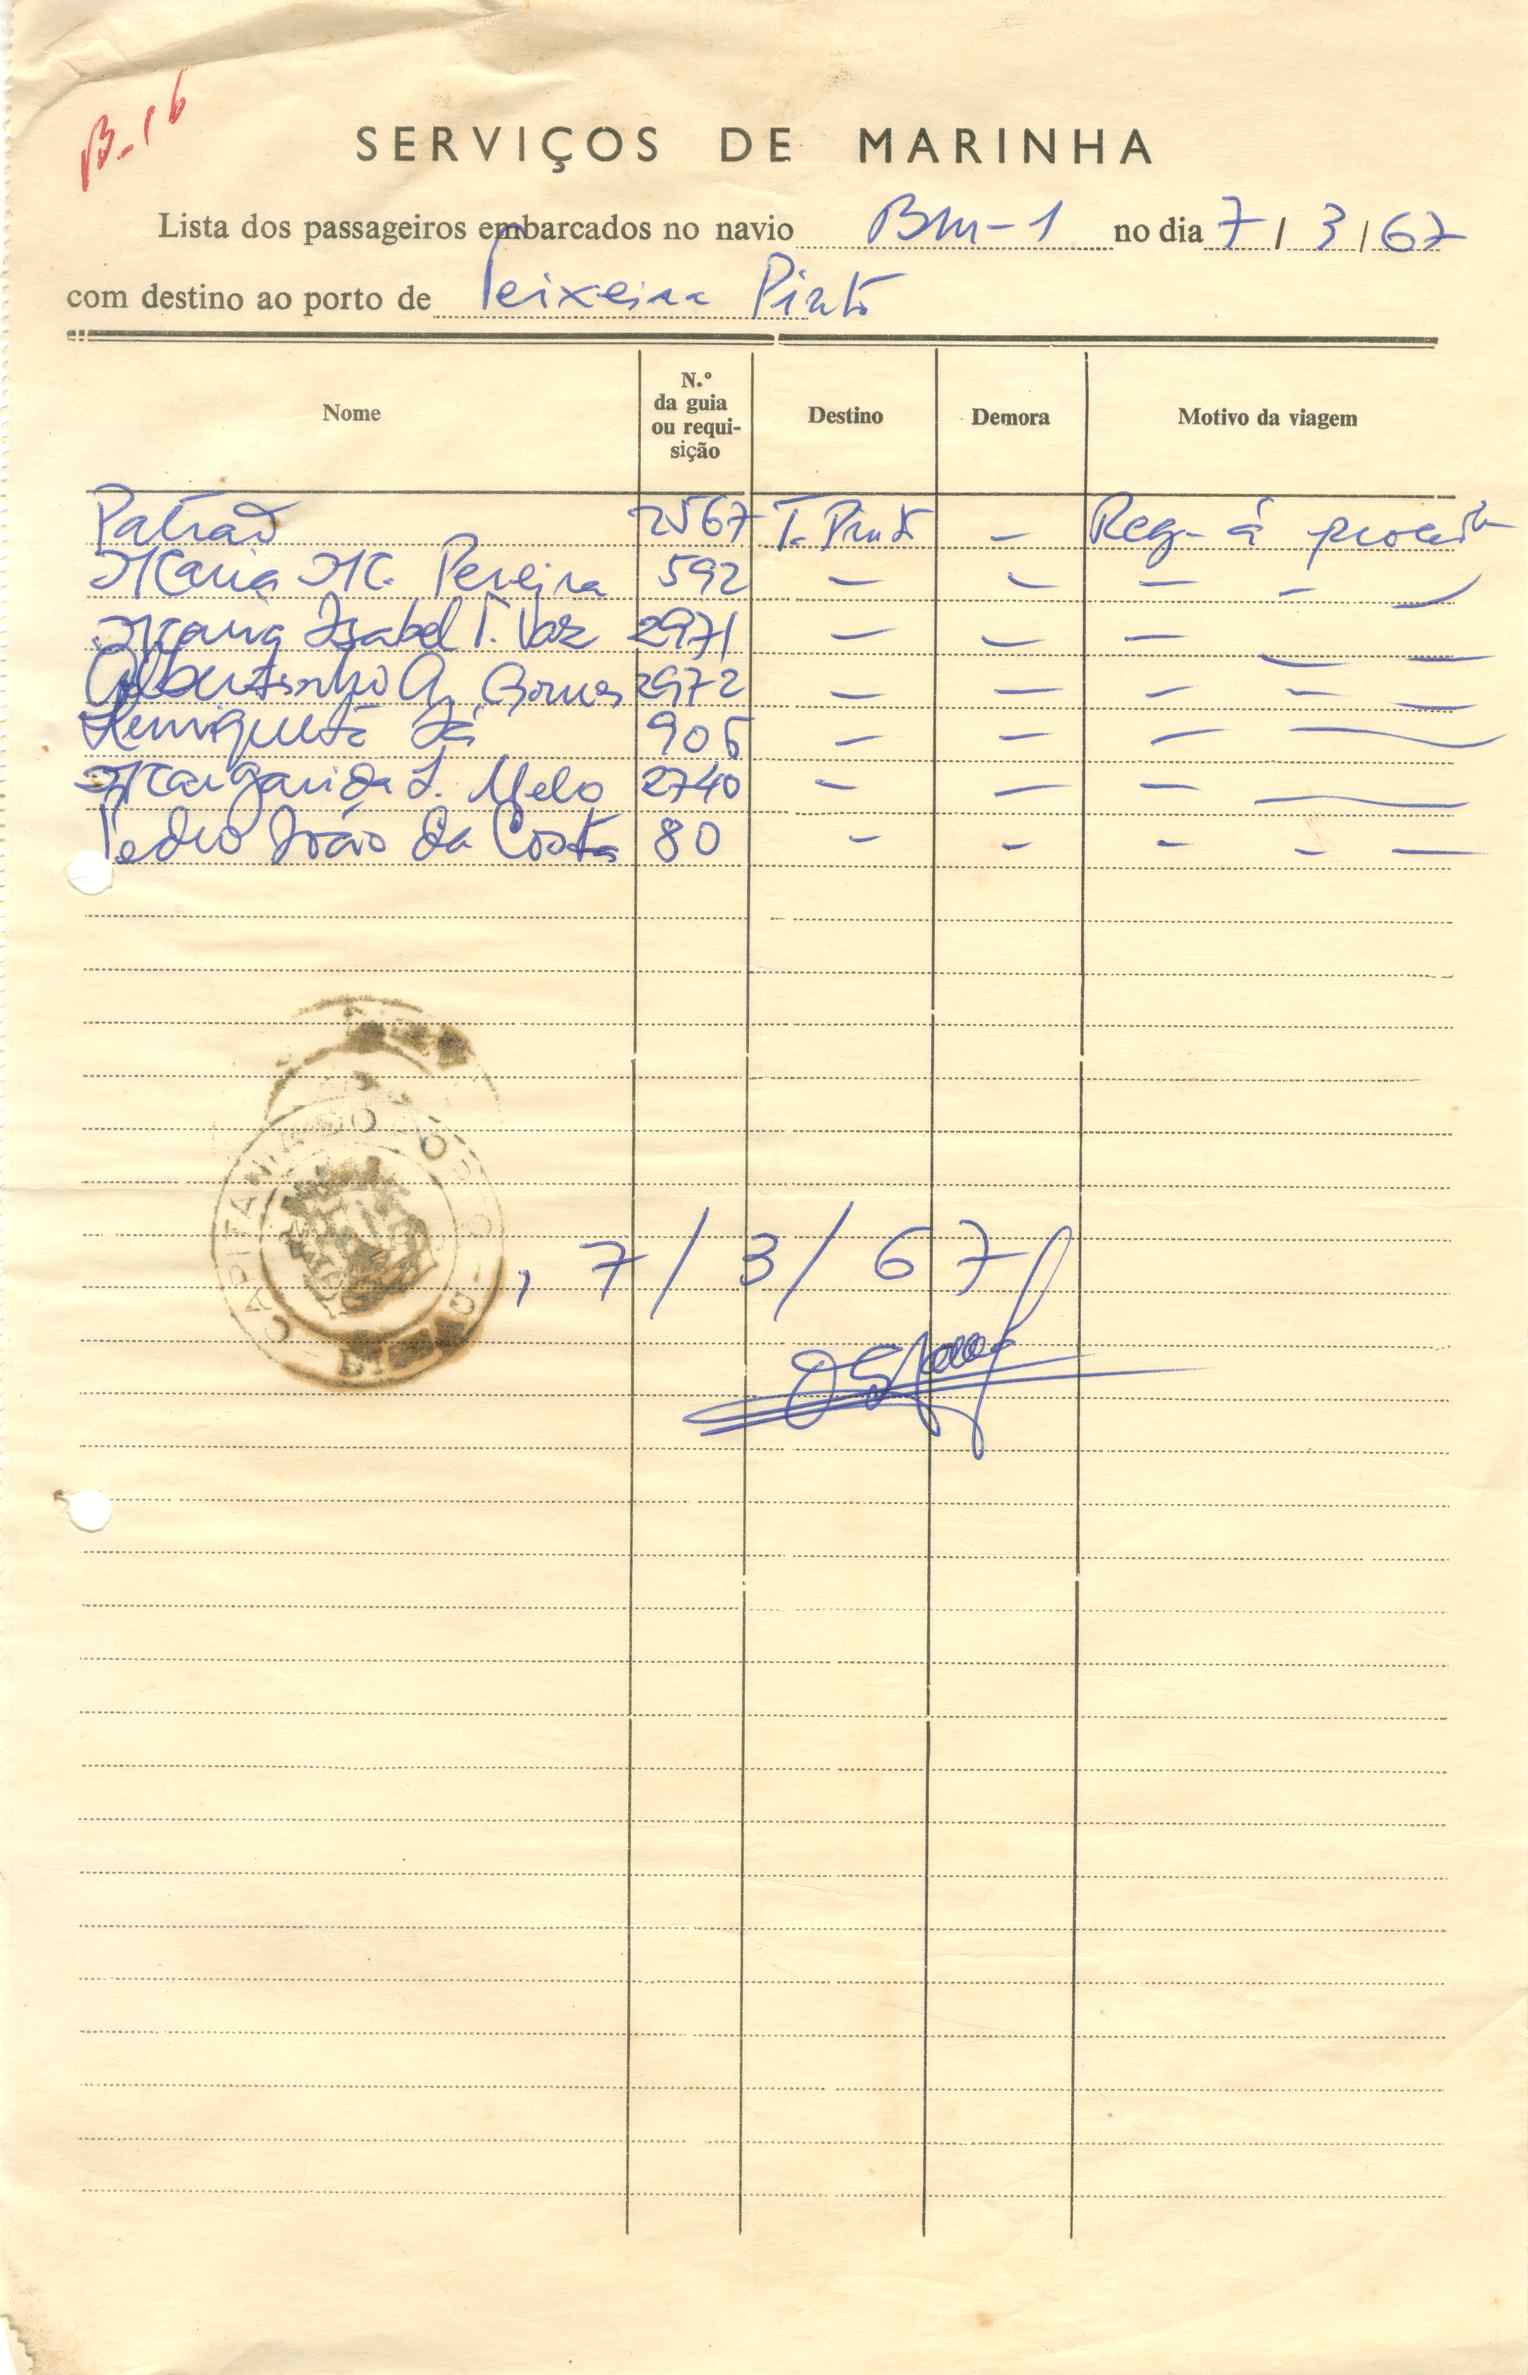 B-16
SERVIÇOS DE MARINHA
Lista dos passageiros embarcados no navio BM-1 no dia 7/3/67
com destino ao porto de Teixeira Pinto
Nome N.º da guia ou requi-sição Destino Demora Motivo da viagem
Patrão 2567 T. Pinto — Reg. á
Maria M. Pereira 592 — — — — —
Maria Isabel T. Vaz 2971 — — — — —
Albertinho A. Gomes 2972 — — — — —
Henriqueta Sá 905 — — — —
Margarida L. Melo 2740 — — — —
Pedro João da Costa 80 — — — — —
CAPITANIA DO PORTO
BISSAU
, 7/3/67